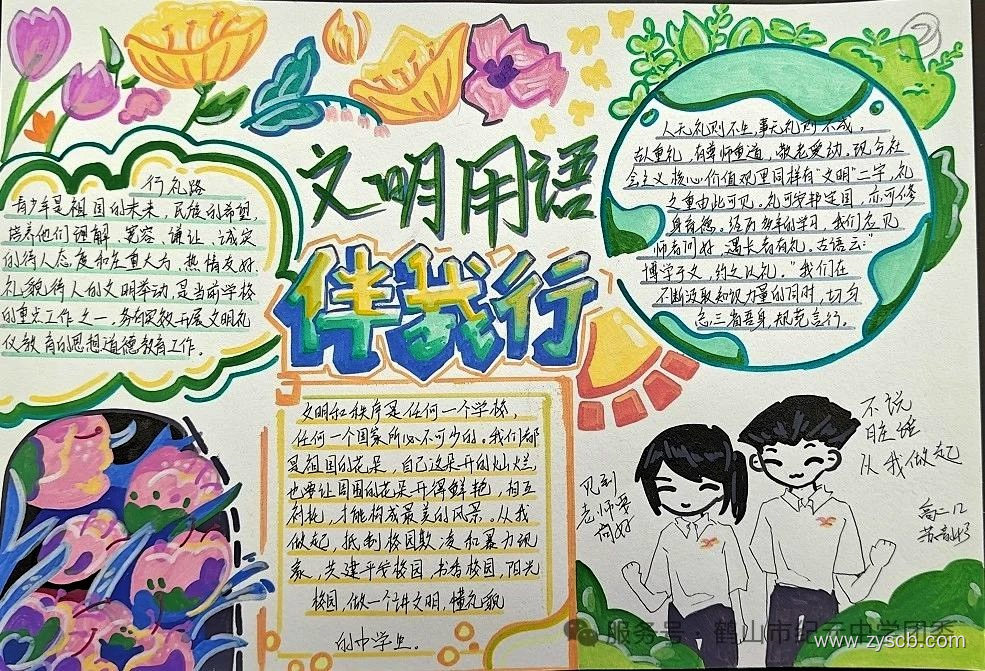 文明用语
伴我行
行礼路
青少年是祖国的未来，民族的希望，
培养他们理解、宽容、谦让、诚实
的待人态度和庄重大方、热情友好、
礼貌待人的文明举动，是当前学校
的重点工作之一。务有实效开展文明礼
仪教育的思想道德教育工作。
人无礼则不生，事无礼则不成，
故重礼，有尊师重道，敬老爱幼。现今社
会主义核心价值观里同样有“文明”二字，礼
之重由此可见。礼可安邦定国，亦可修
身育德。经历多年的学习，我们应见
师者问好，遇长者有礼。古语云：“
博学于文，约之以礼。”我们在
不断汲取知识力量的同时，切勿
忘三省吾身，规范言行。
文明和秩序是任何一个学校，
任何一个国家所必不可少的。我们都
是祖国的花朵，自己这朵开的灿烂，
也要让周围的花朵开得鲜艳，相互
衬托，才能构成最美的风景。从我
做起，抵制校园欺凌和暴力现
象，共建平安校园，书香校园，阳光
校园，做一个讲文明，懂礼貌
的中学生。
见到
老师要
问好
不说
脏话
从我做起
高二12
②
服务号·鹤山市纪元中学团委
www.zyscb.com